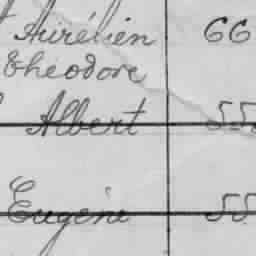 Aurélien 66
Théodore
Albert 55
Eugène 55